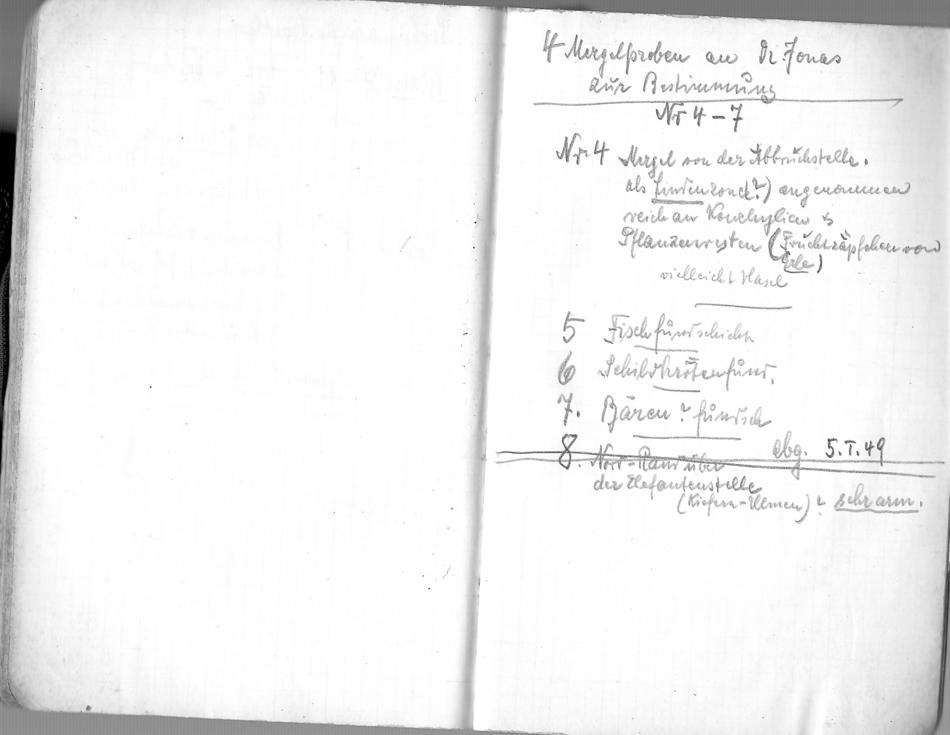 4 Mergelproben an Dr. Jonas
zur Bestimmung
Nr 4 – 7
Nr. 4 Mergel von der Abbruchstelle.
als Lindenzone(?) angenommen
reich an Konchylien &
Pflanzenresten (Fruchtzäpfchen von
Erle)
vielleicht Hasel
5 Fischfundschicht
6 Schildkrötenfund.
7. Bären? fundsch
abg. 5.I.49
8. Nord-Rand über
der Elefantenstelle
(Kiefern-Ulmen)? sehr arm.